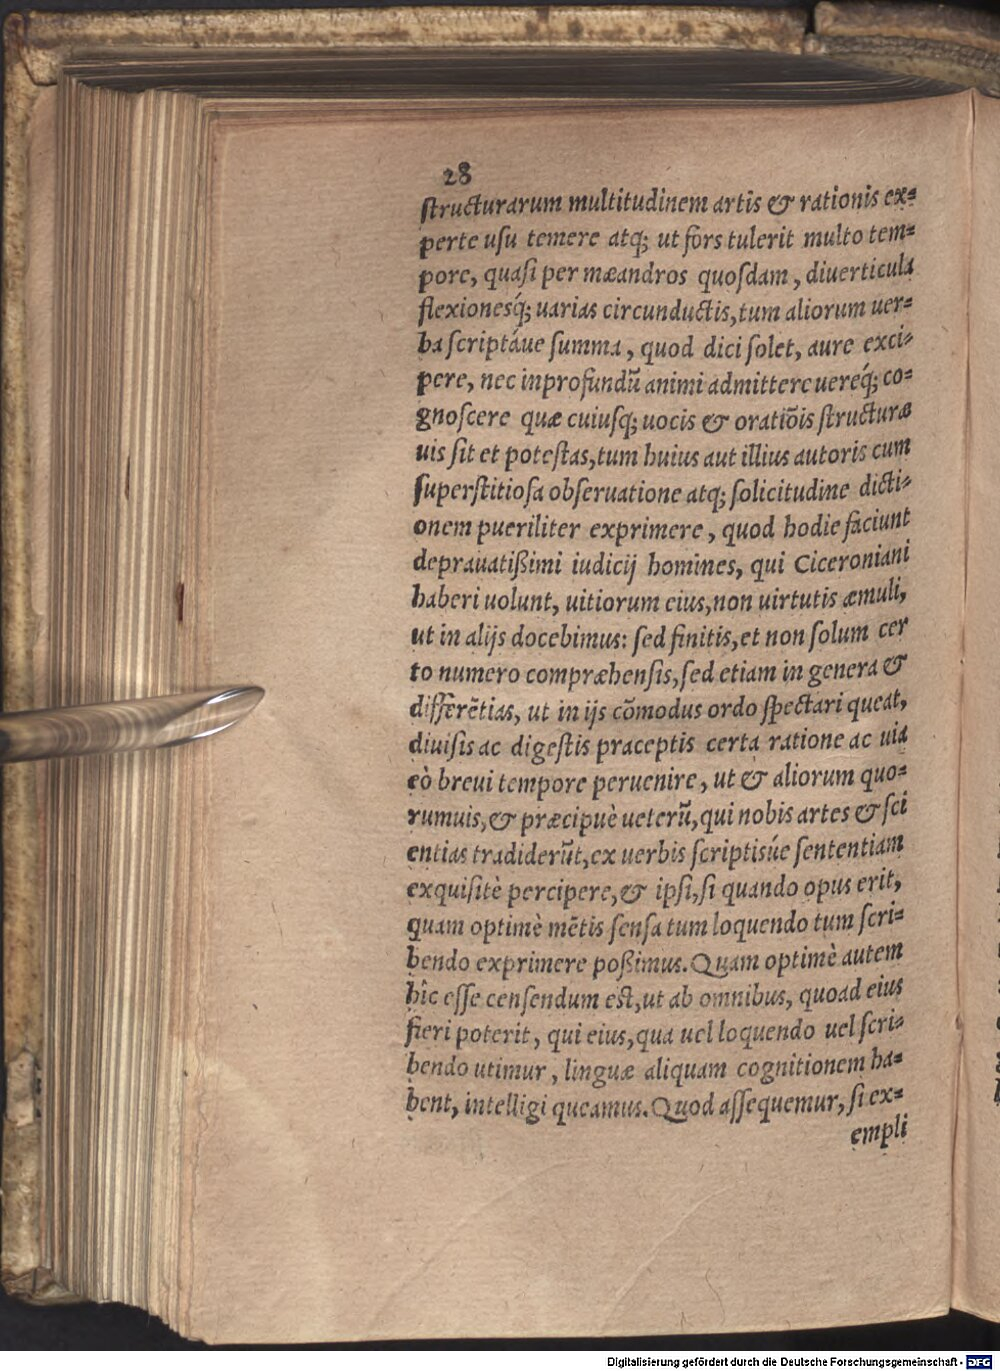 28
ſtructurarum multitudinem artis & rationis ex=
perte uſu temere atq; ut fors tulerit multo tem=
pore, quaſi per mæandros quoſdam, diuerticula
flexionesq́; uarias circunductis, tum aliorum uer=
ba ſcriptáue ſumma, quod dici ſolet, aure exci=
pere, nec in profundũ animi admittere uereq́; co=
gnoſcere quæ cuiuſq; uocis & oratiõis ſtructuræ
uis ſit et poteſtas, tum huius aut illius autoris cum
ſuperſtitioſa obſeruatione atq; ſolicitudine dicti=
onem pueriliter exprimere, quod hodie faciunt
deprauatißimi iudicij homines, qui Ciceroniani
haberi uolunt, uitiorum eius, non uirtutis æmuli,
ut in alijs docebimus: ſed finitis, et non ſolum cer
to numero compræhenſis, ſed etiam in genera &
differẽtias, ut in ijs cõmodus ordo ſpectari queat,
diuiſis ac digeſtis præceptis certa ratione ac uia
eò breui tempore peruenire, ut & aliorum quo=
rumuis, & præcipuè ueterũ, qui nobis artes & ſci
entias tradiderũt, ex uerbis ſcriptisúe ſententiam
exquiſitè percipere, & ipſi, ſi quando opus erit,
quam optimè mẽtis ſenſa tum loquendo tum ſcri=
bendo exprimere poßimus. Quam optimè autem
hîc eſſe cenſendum eſt, ut ab omnibus, quoad eius
fieri poterit, qui eius, qua uel loquendo uel ſcri=
bendo utimur, linguæ aliquam cognitionem ha=
bent, intelligi queamus. Quod aſſequemur, ſi ex=
empli
Digitalisierung gefördert durch die Deutsche Forschungsgemeinschaft - DFG